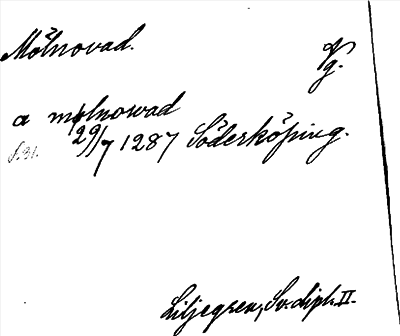 Mölnovad. Vg.
a molnowad
29/7 1287 Söderköping.
s. 31.
Liljegren, Sv. dipl. II.